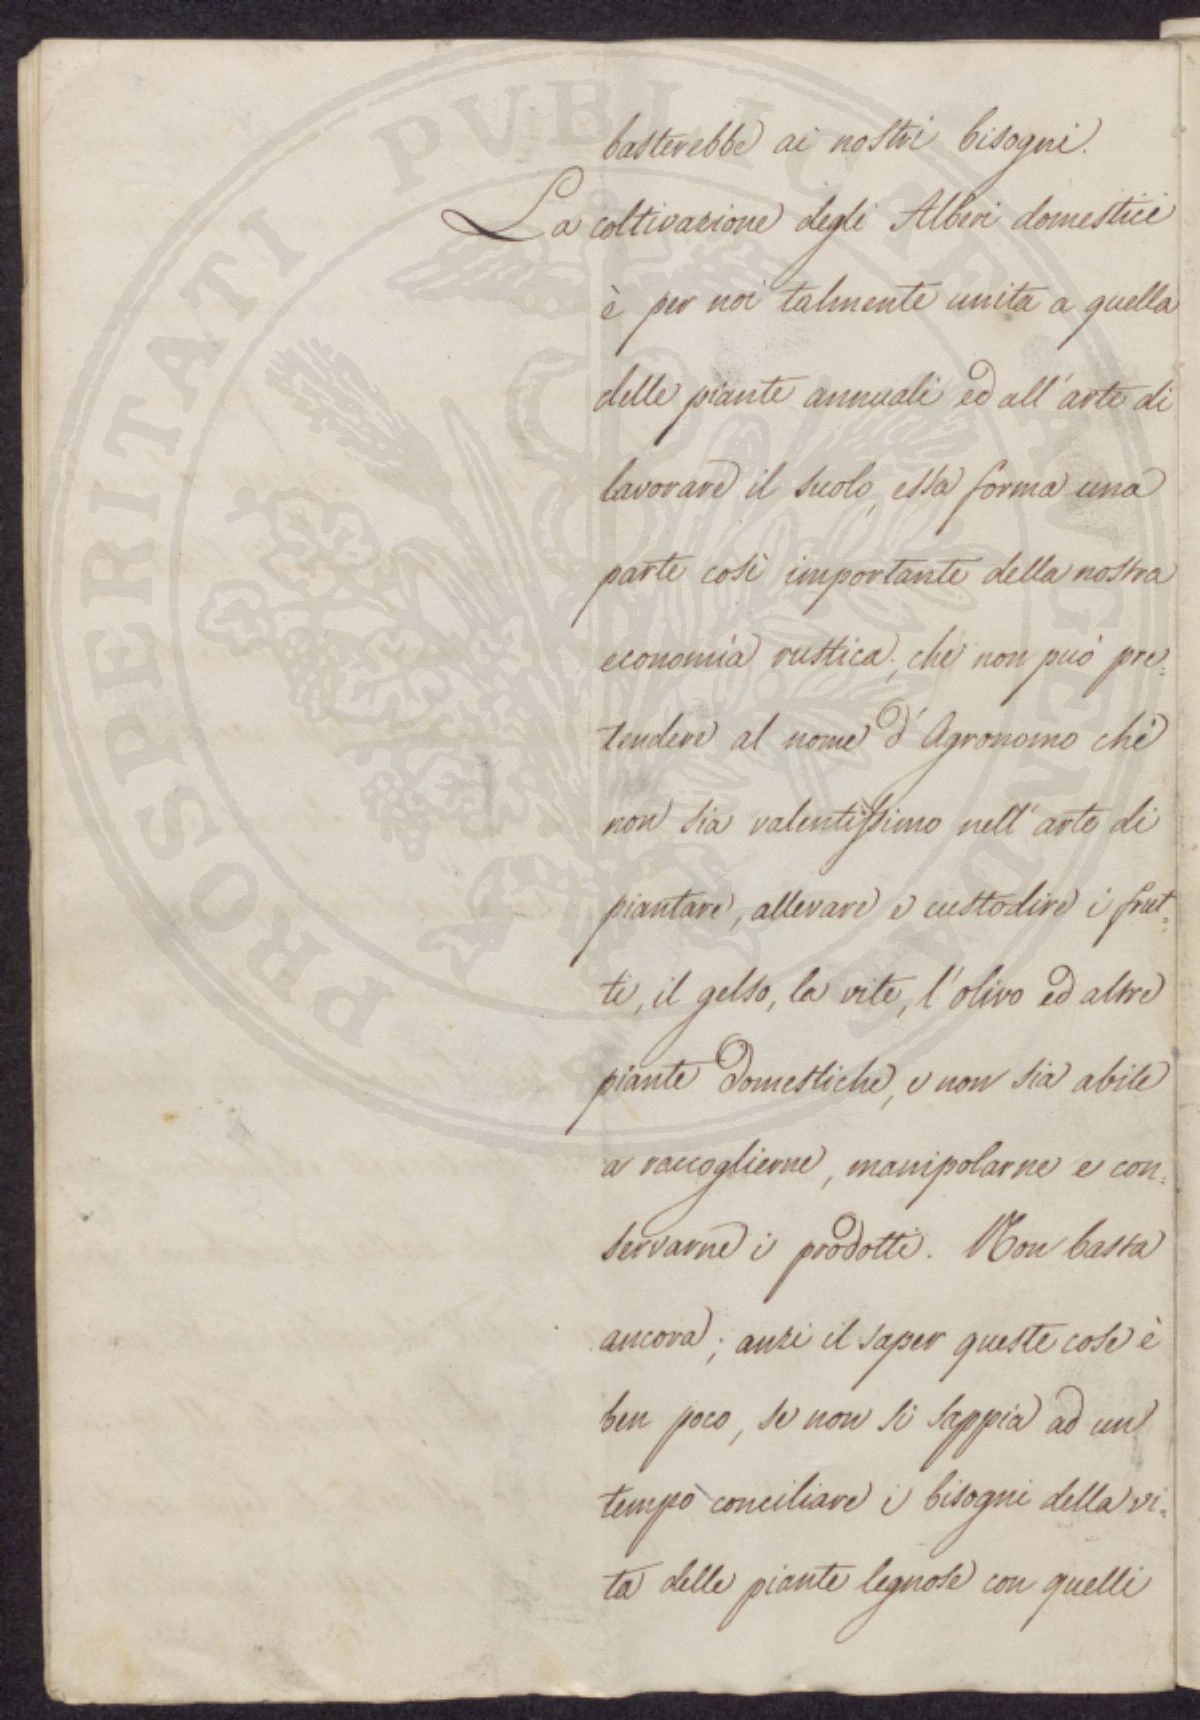 basterebbe ai nostri bisogni.
La coltivazione degli Alberi domestici
è per noi talmente unita a quella
delle piante annuali ed all'arte di
lavorare il suolo, essa forma una
parte così importante della nostra
economia rustica, che non può pre=
tendere al nome d'Agronomo chi
non sia valentissimo nell'arte di
piantare, allevare e custodire i frut=
ti, il gelso, la vite, l'olivo ed altre
piante domestiche, e non sia abile
a raccoglierne, manipolarne e con=
servarne i prodotti. Non basta
ancora; anzi il saper queste cose è
ben poco, se non si sappia ad un
tempo conciliare i bisogni della vi=
ta delle piante legnose con quelli
PROSPERITATI PUBLICAE AUGENDAE